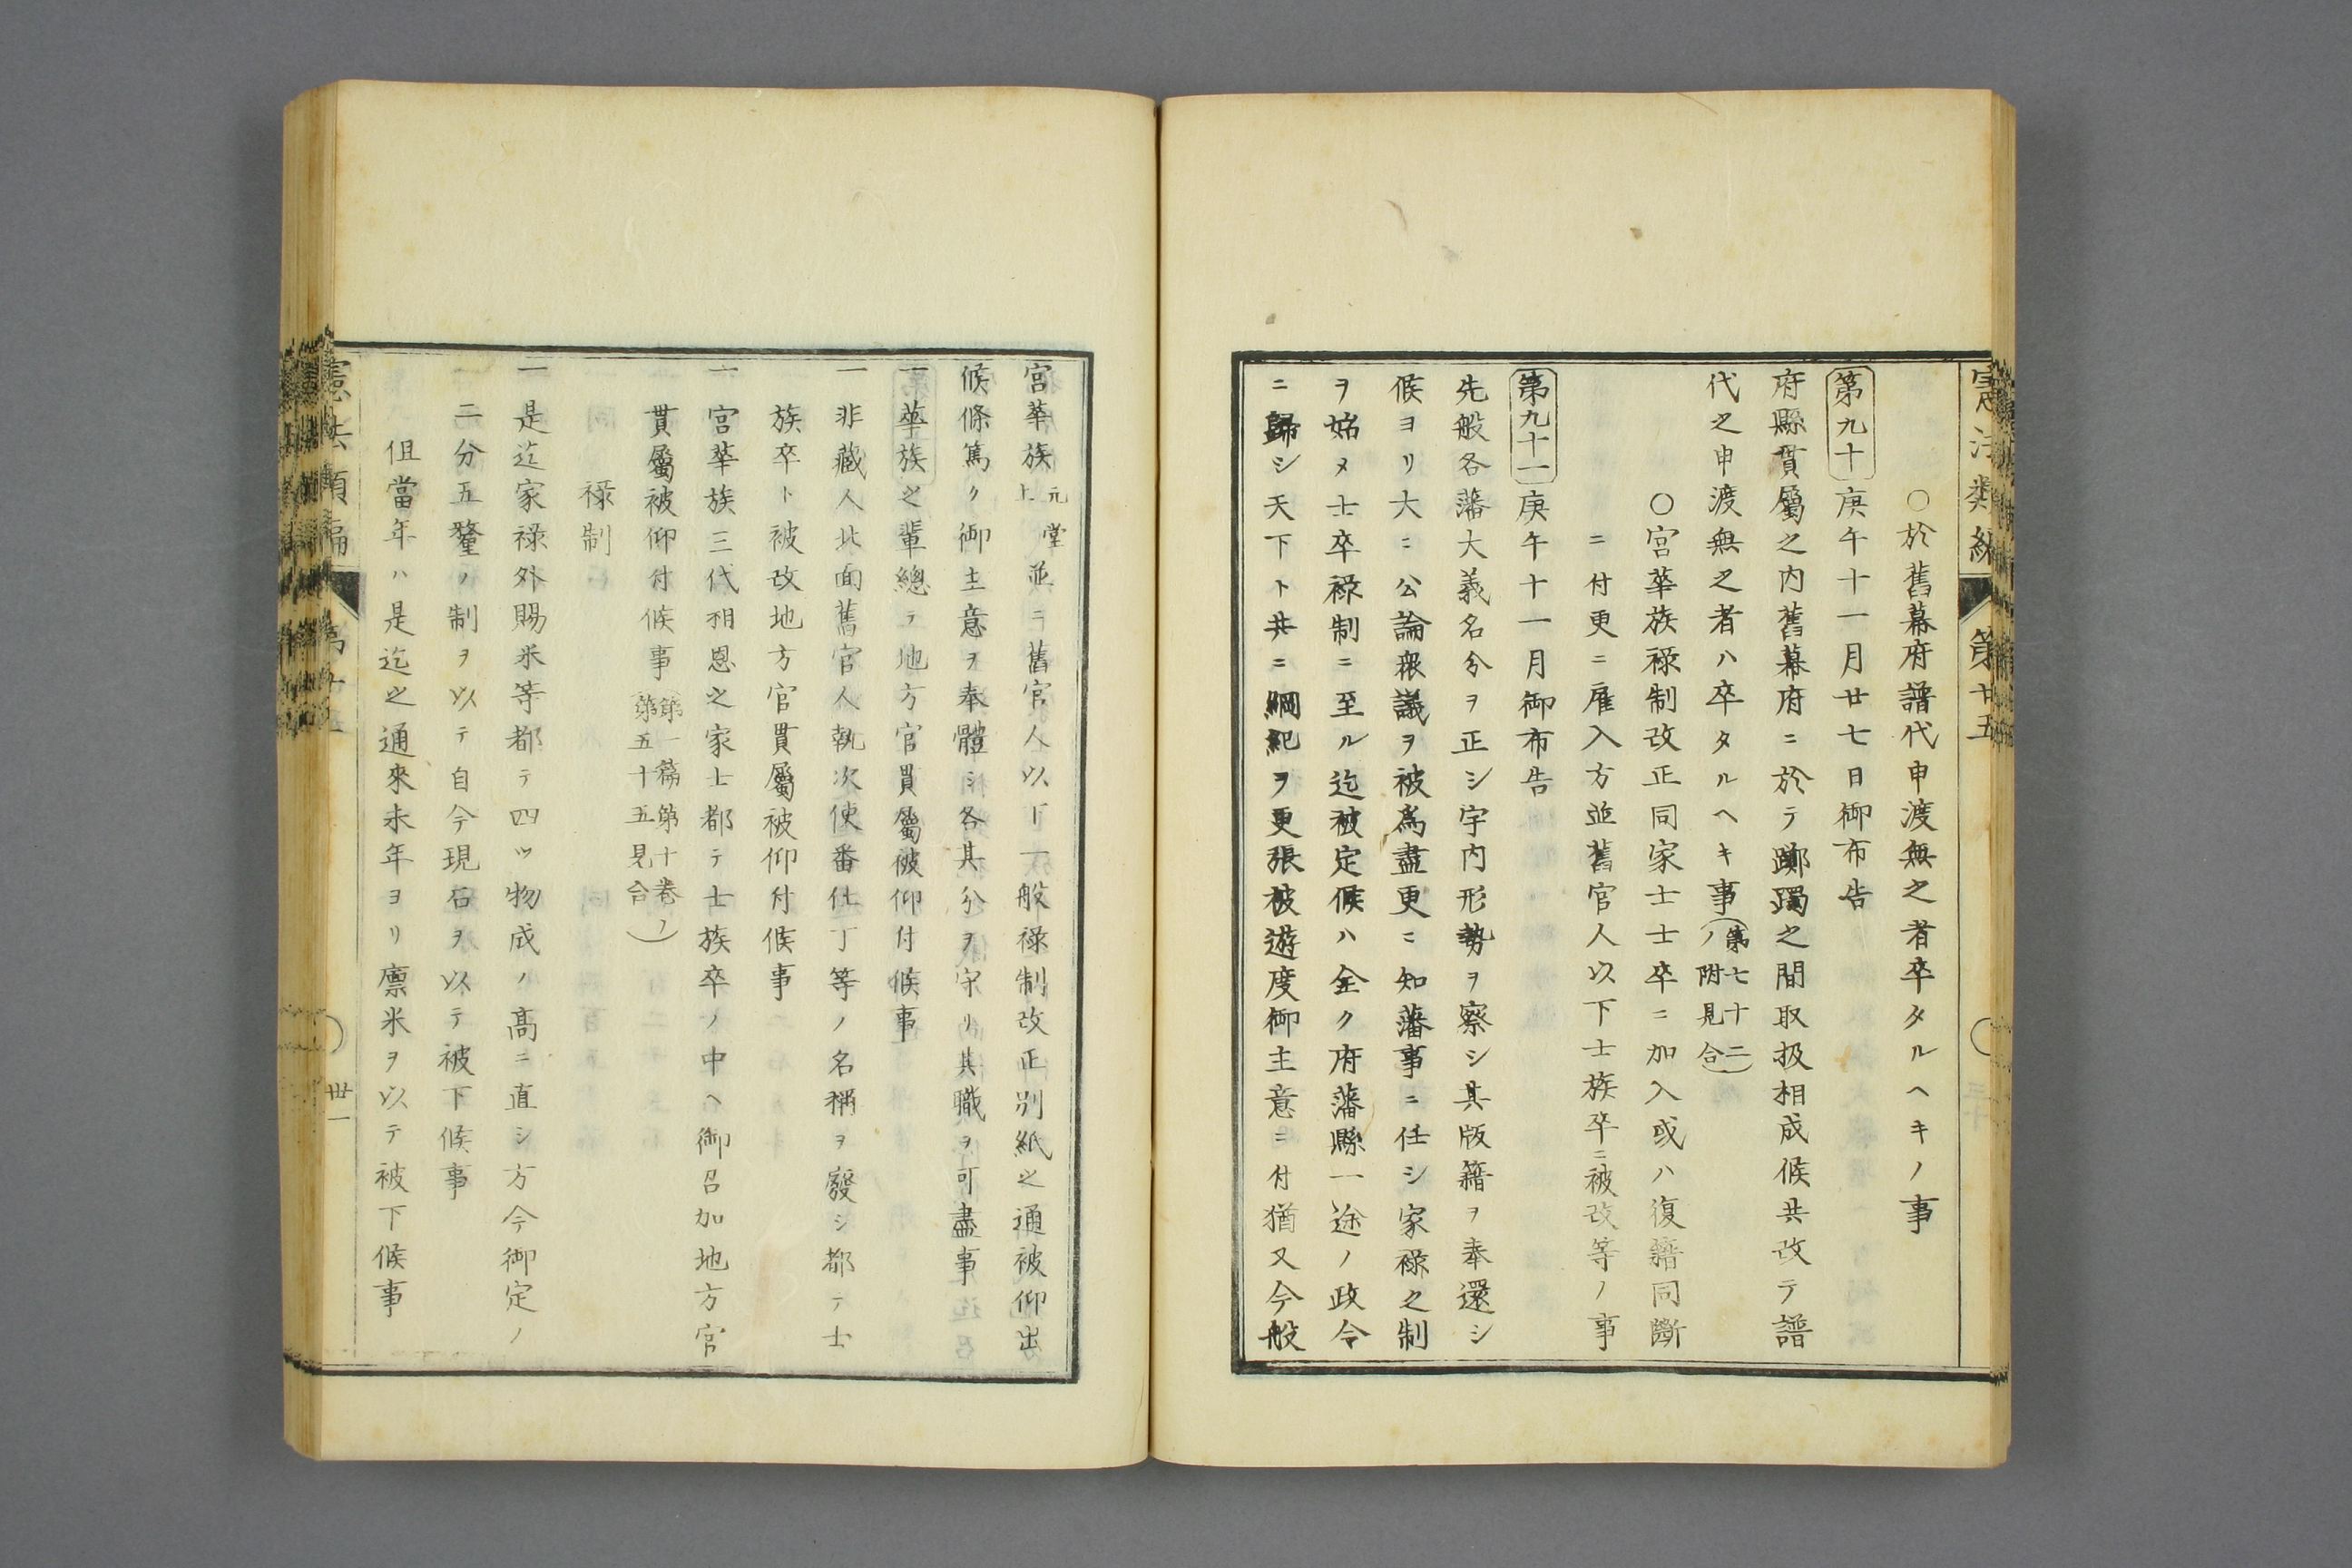 憲法類編
第廿五
○於舊幕府譜代申渡無之者卒タルヘキノ事
第九十 庚午十一月廿七日御布告
府縣貫屬之内舊幕府ニ於テ躑躅之間取扱相成候共改テ譜
代之申渡無之者ハ卒タルヘキ事(第七十二
ノ附見合)
○宮華族禄制改正同家士士卒ニ加入或ハ復籍同斷
ニ付更ニ雇入方並舊官人以下士族卒ニ被改等ノ事
第九十一 庚午十一月御布告
先般各藩大義名分ヲ正シ宇内形勢ヲ察シ其版籍ヲ奉還シ
候ヨリ大ニ公論衆議ヲ被為盡更ニ知藩事ニ任シ家禄之制
ヲ始メ士卒禄制ニ至ル迄被定候ハ全ク府藩縣一途ノ政令
ニ歸シ天下ト共ニ綱紀ヲ更張被遊度御主意ニ付猶又今般
宮華族元堂
上並ニ舊官人以下一般禄制改正別紙之通被仰出
候條篤ク御主意ヲ奉體シ各其分ヲ守リ其職ヲ可盡事
一華族之輩總テ地方官貫屬被仰付候事
一非藏人北面舊官人執次使番仕丁等ノ名稱ヲ廢シ都テ士
族卒ト被改地方官貫屬被仰付候事
一宮華族三代相恩之家士都テ士族卒ノ中ヘ御召加地方官
貫屬被仰付候事(第一篇第十巻ノ
第五十五見合)
禄制
一是迄家禄外賜米等都テ四ツ物成ノ高ニ直シ方今御定ノ
二分五釐ノ制ヲ以テ自今現石ヲ以テ被下候事
但當年ハ是迄之通來未年ヨリ廩米ヲ以テ被下候事
憲法類編
卅一